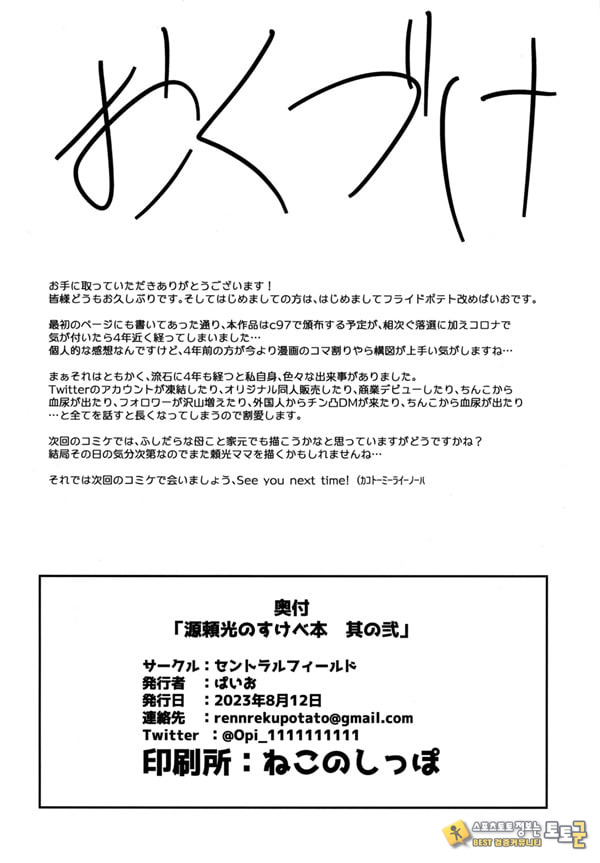 おくづけ
お手に取っていただきありがとうございます！
皆様どうもお久しぶりです。そしてはじめましての方は、はじめましてフライドポテト改めぱいおです。
最初のページにも書いてあった通り、本作品はc97で頒布する予定が、相次ぐ落選に加えコロナで
気が付いたら4年近く経ってしまいました…
個人的な感想なんですけど、4年前の方が今より漫画のコマ割りや構図が上手い気がしますね…
まぁそれはともかく、流石に4年も経つと私自身、色々な出来事がありました。
Twitterのアカウントが凍結したり、オリジナル同人販売したり、商業デビューしたり、ちんこから
血尿が出たり、フォロワーが沢山増えたり、外国人からチン凸DMが来たり、ちんこから血尿が出たり
…と全てを話すと長くなってしまうので割愛します。
次回のコミケでは、ふしだらな母こと家元でも描こうかなと思っていますがどうですかね？
結局その日の気分次第なのでまた頼光ママを描くかもしれませんね…
それでは次回のコミケで会いましょう、See you next time!（ｶｺﾄｰﾐｰﾗｲｰﾉｰﾙ
奥付
「源頼光のすけべ本　其の弐」
サークル：セントラルフィールド
発行者　：ぱいお
発行日　：2023年8月12日
連絡先　：rennrekupotato@gmail.com
Twitter　：@Opi_1111111111
印刷所：ねこのしっぽ
스포츠토토 정보는 토토군
BEST 검증커뮤니티